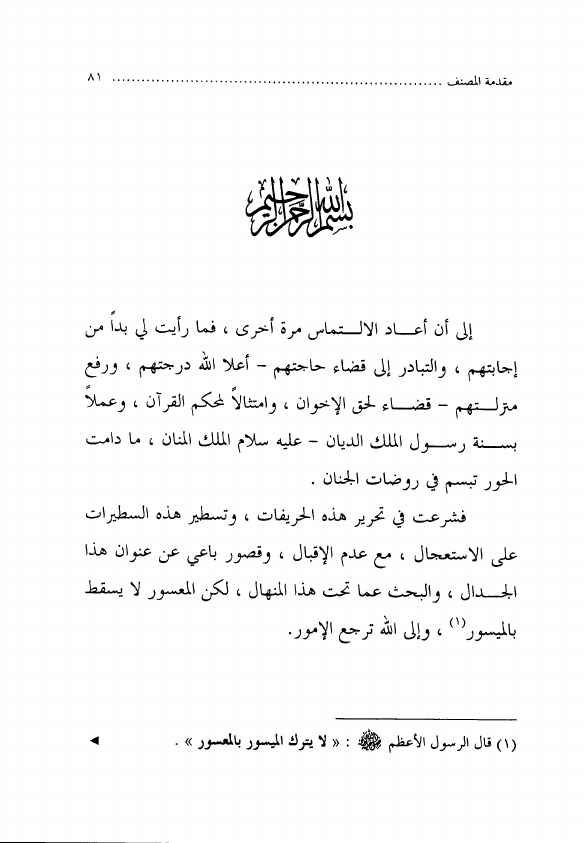 مقدمة المصنف ........................................................................ ٨١
بسم الله الرحمن الرحيم
إلى أن أعـــاد الالـــتماس مرة أخرى ، فما رأيت لي بداً من
إجابتهم ، والتبادر إلى قضاء حاجتهم – أعلا الله درجتهم ، ورفع
منزلـــتهم – قضـــاء لحق الإخوان ، وامتثالاً لمحكم القرآن ، وعملاً
بســـنة رســـول الملك الديان – عليه سلام الملك المنان ، ما دامت
الحور تبسم في روضات الجنان .
فشرعت في تحرير هذه الحريفات ، وتسطير هذه السطيرات
على الاستعجال ، مع عدم الإقبال ، وقصور باعي عن عنوان هذا
الجـــدال ، والبحث عما تحت هذا المنهال ، لكن المعسور لا يسقط
بالميسور(١) ، وإلى الله ترجع الإمور.
(١) قال الرسول الأعظم ﷺ : « لا يترك الميسور بالمعسور » . ◄